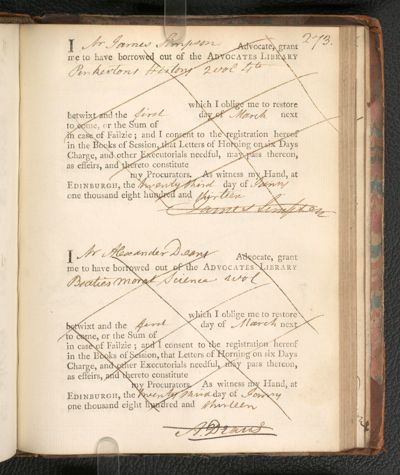 273.
I Mr James Simpson Advocate, grant
me to have borrowed out of the ADVOCATES LIBRARY
Pinkertons History 2 vol 4to
which I oblige me to restore
betwixt and the first day of March next
to come, or the Sum of
in case of Failzie ; and I consent to the registration hereof
in the Books of Session, that Letters of Horning on six Days
Charge, and other Executorials needful, may pass thereon,
as effeirs, and thereto constitute
my Procurators. As witness my Hand, at
EDINBURGH, the twenty third day of Janry
one thousand eight hundred and thirteen
James Simpson
I Mr Alexander Deans Advocate, grant
me to have borrowed out of the ADVOCATES LIBRARY
Beatties moral Science vol
which I oblige me to restore
betwixt and the first day of March next
to come, or the Sum of
in case of Failzie ; and I consent to the registration hereof
in the Books of Session, that Letters of Horning on six Days
Charge, and other Executorials needful, may pass thereon,
as effeirs, and thereto constitute
my Procurators. As witness my Hand, at
EDINBURGH, the twenty third day of Janry
one thousand eight hundred and thirteen
A. Deans